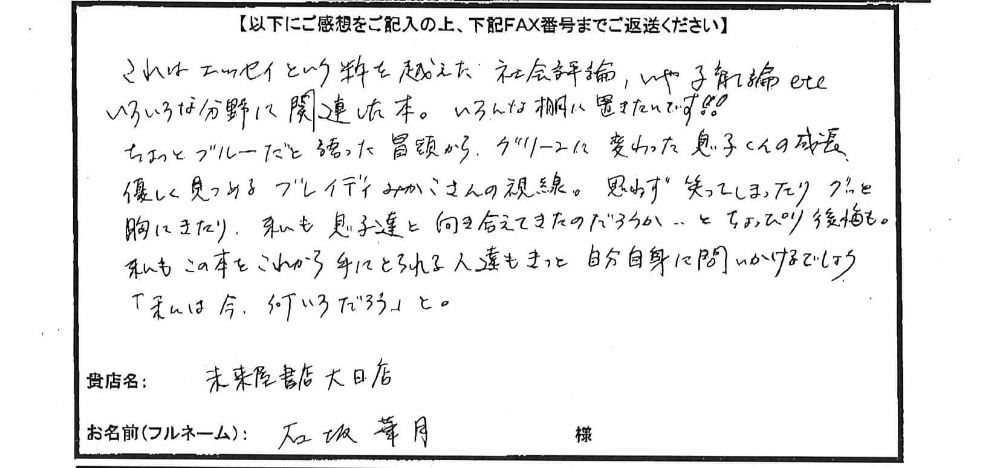 【以下にご感想をご記入の上、下記FAX番号までご返送ください】
これは エッセイという 枠を 越えた 社会評論, いや 子育て論 etc
いろいろな分野に 関連した本。 いろんな棚に 置きたいです!!!
ちょっと ブルーだと 語った 冒頭から、グリーンに 変わった 息子くんの成長
優しく 見つめる ブレイディみかこさんの視線。 思わず 笑ってしまったり グッと
胸にきたり、私も 息子達と 向き合えてきたのだろうか‥と ちょっぴり後悔も。
私も この本を これから 手にとられる人達もきっと 自分自身に問いかけるでしょう
「私は 今、何いろだろう」と。
貴店名: 未来屋書店大日店
お名前(フルネーム): 石坂 華月 様